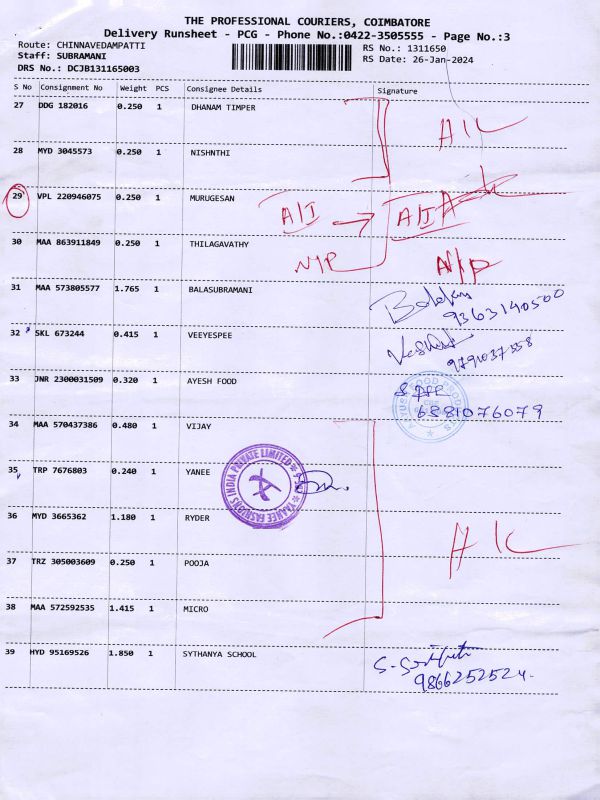 THE PROFESSIONAL COURIERS, COIMBATORE
Delivery Runsheet - PCG - Phone No.:0422-3505555 - Page No.:3
Route: CHINNAVEDAMPATTI
RS No.: 1311650
Staff: SUBRAMANI
RS Date: 26-Jan-2024
DRS No.: DCJB131165003
S No Consignment No Weight PCS Consignee Details Signature
27 DDG 182016 0.250 1 DHANAM TIMPER
A/C
28 MYD 3045573 0.250 1 NISHNTHI
29 VPL 220946075 0.250 1 MURUGESAN
A/I A/I
30 MAA 863911849 0.250 1 THILAGAVATHY
N/P N/P
31 MAA 573805577 1.765 1 BALASUBRAMANI
9363140500
32 SKL 673244 0.415 1 VEEYESPEE
9791037558
33 JNR 2300031509 0.320 1 AYESH FOOD
FOOD PRODUCTS
6881076079
34 MAA 570437386 0.480 1 VIJAY
35 TRP 7676803 0.240 1 YANEE
YAANEE FASHIONS INDIA PRIVATE LIMITED
36 MYD 3665362 1.180 1 RYDER
A/C
37 TRZ 305003609 0.250 1 POOJA
38 MAA 572592535 1.415 1 MICRO
39 HYD 95169526 1.850 1 SYTHANYA SCHOOL
9866252524